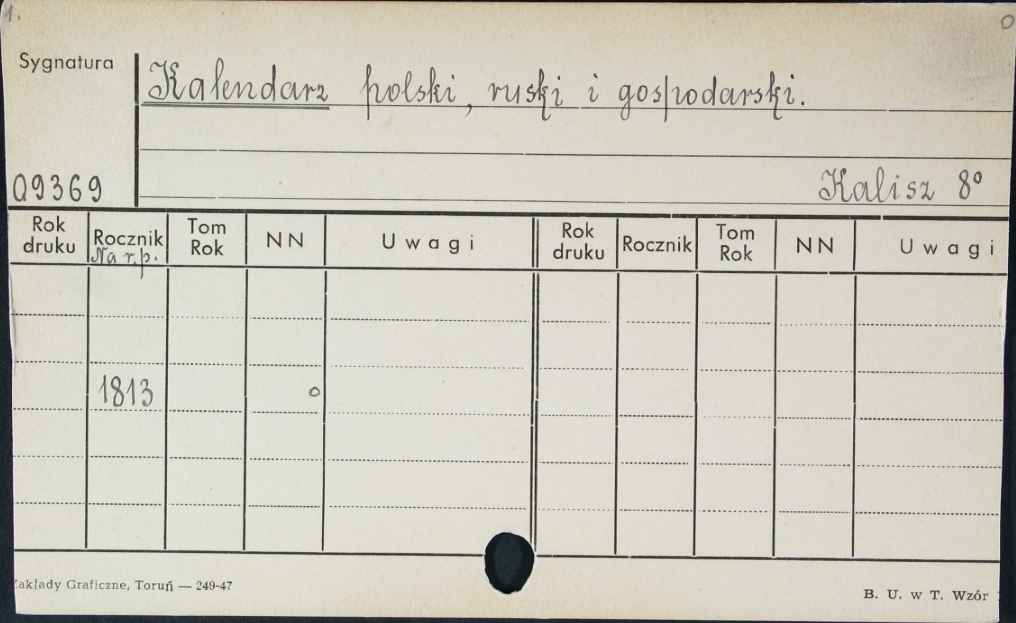 1.
Sygnatura
Kalendarz polski, ruski i gospodarski.
09369
Kalisz 8°
Rok druku Rocznik Tom Rok NN Uwagi Rok druku Rocznik Tom Rok NN Uwagi
Na r.p.
1813 o
Zakłady Graficzne, Toruń — 249-47
B. U. w T. Wzór